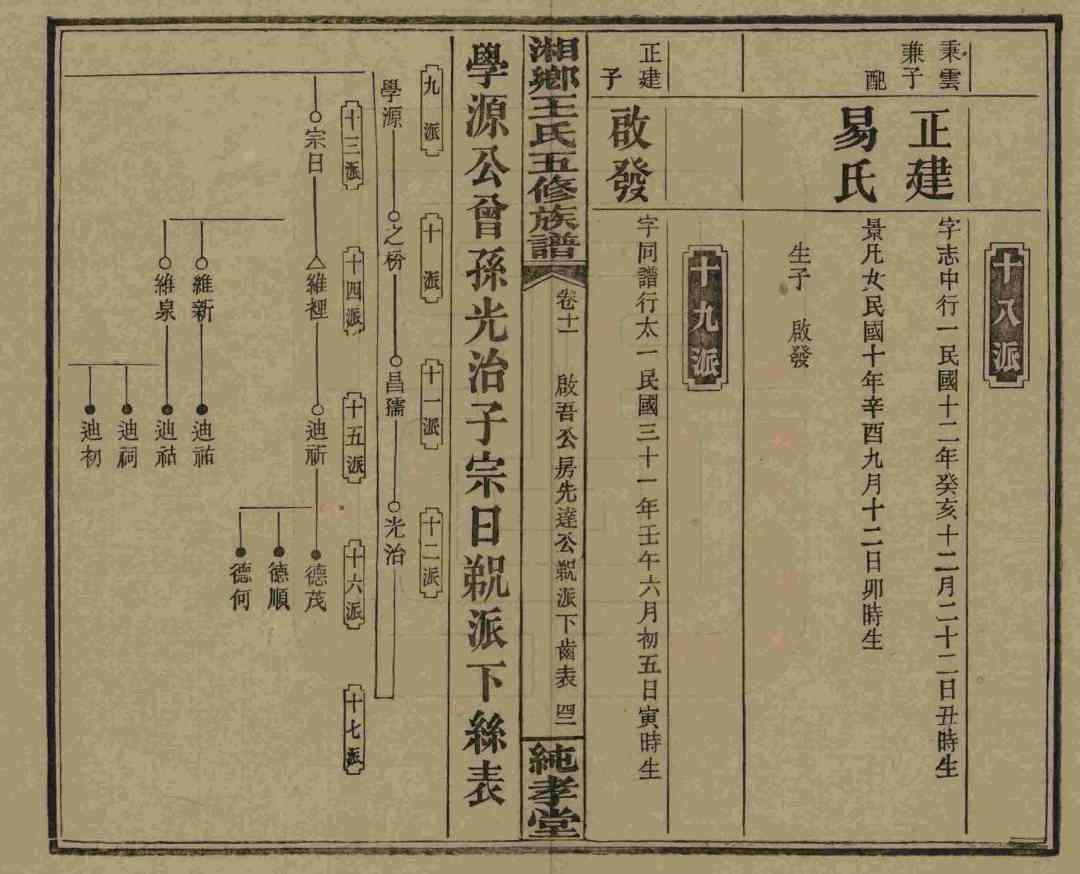 十八派
秉雲
兼子
正建
字志中行一民國十二年癸亥十二月二十二日丑時生
配
易氏
景凡女民國十年辛酉九月十二日卯時生
生子 啟發
十九派
正建
子
啟發
字同譜行太一民國三十一年壬午六月初五日寅時生
湘鄉王氏五修族譜
卷十一 啟吾公房先達公派下齒表
純孝堂
學源公曾孫光治子宗日派下絲表
九派
十派
十一派
十二派
學源
之枌
昌孺
光治
十三派
十四派
十五派
十六派
十七派
宗日
維裡
迪祈
德茂
德順
德何
維新
迪祐
維泉
迪祜
迪祠
迪初